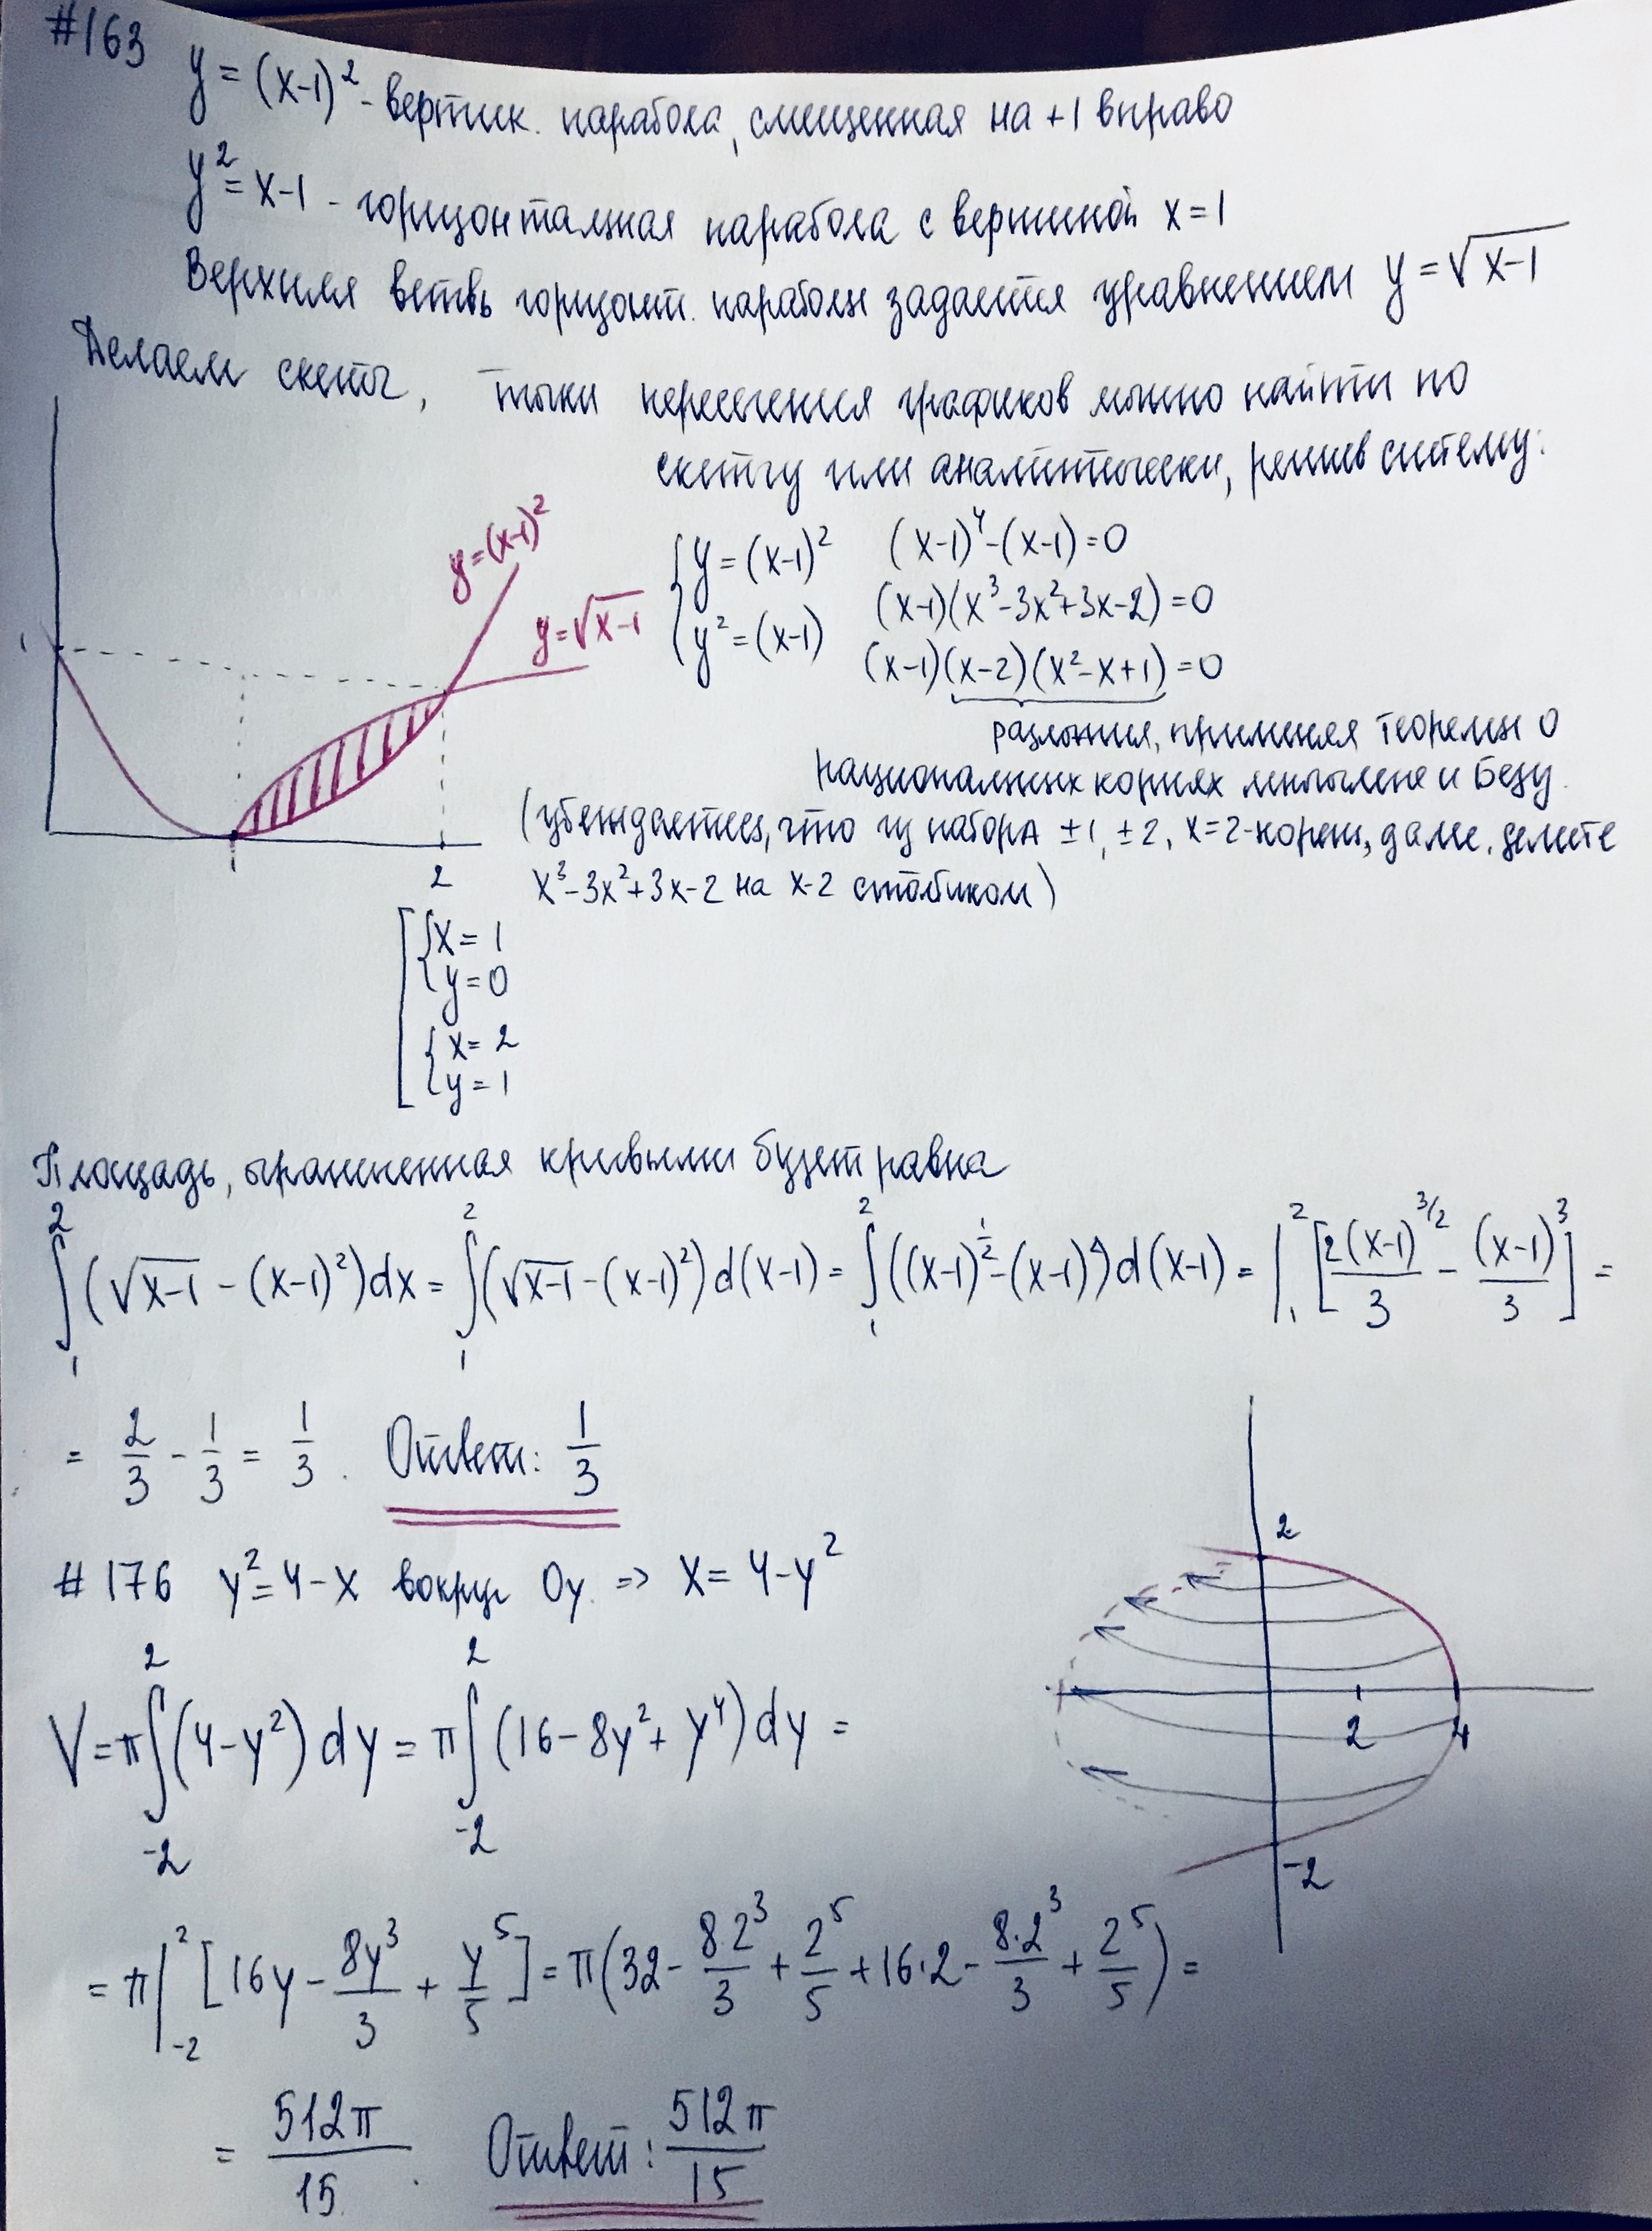 #163
y = (x-1)² - вертик. парабола, смещенная на +1 вправо
y² = x-1 - горизонтальная парабола с вершиной x = 1
Верхняя ветвь горизонт. параболы задается уравнением y = √(x-1)
Делаем скетч, точки пересечения графиков можно найти по
скетчу или аналитически, решив систему:
y = (x-1)²
y = √(x-1)
1
1
2
{ y = (x-1)²    (x-1)⁴ - (x-1) = 0
{ y² = (x-1)    (x-1)(x³-3x²+3x-2) = 0
(x-1)(x-2)(x²-x+1) = 0
разложил, применяя теоремы о
рациональных корнях многочлена и Безу.
(убеждаетесь, что из набора ±1, ±2, x=2-корень, далее, делите
x³-3x²+3x-2 на x-2 столбиком)
[ { x = 1
{ y = 0
{ x = 2
{ y = 1
Площадь, ограниченная кривыми будет равна
∫₁² (√(x-1) - (x-1)²)dx = ∫₁² (√(x-1) - (x-1)²)d(x-1) = ∫₁² ((x-1)^½ - (x-1)²)d(x-1) = |₁² [2(x-1)^3/2 / 3 - (x-1)³ / 3] =
= 2/3 - 1/3 = 1/3. Ответ: 1/3
#176 y² = 4-x вокруг Oy. => x = 4-y²
2
2
4
-2
V = π∫₋₂² (4-y²) dy = π∫₋₂² (16-8y²+y⁴)dy =
= π|₋₂² [16y - 8y³/3 + y⁵/5] = π(32 - 8·2³/3 + 2⁵/5 + 16·2 - 8·2³/3 + 2⁵/5) =
= 512π/15. Ответ: 512π/15